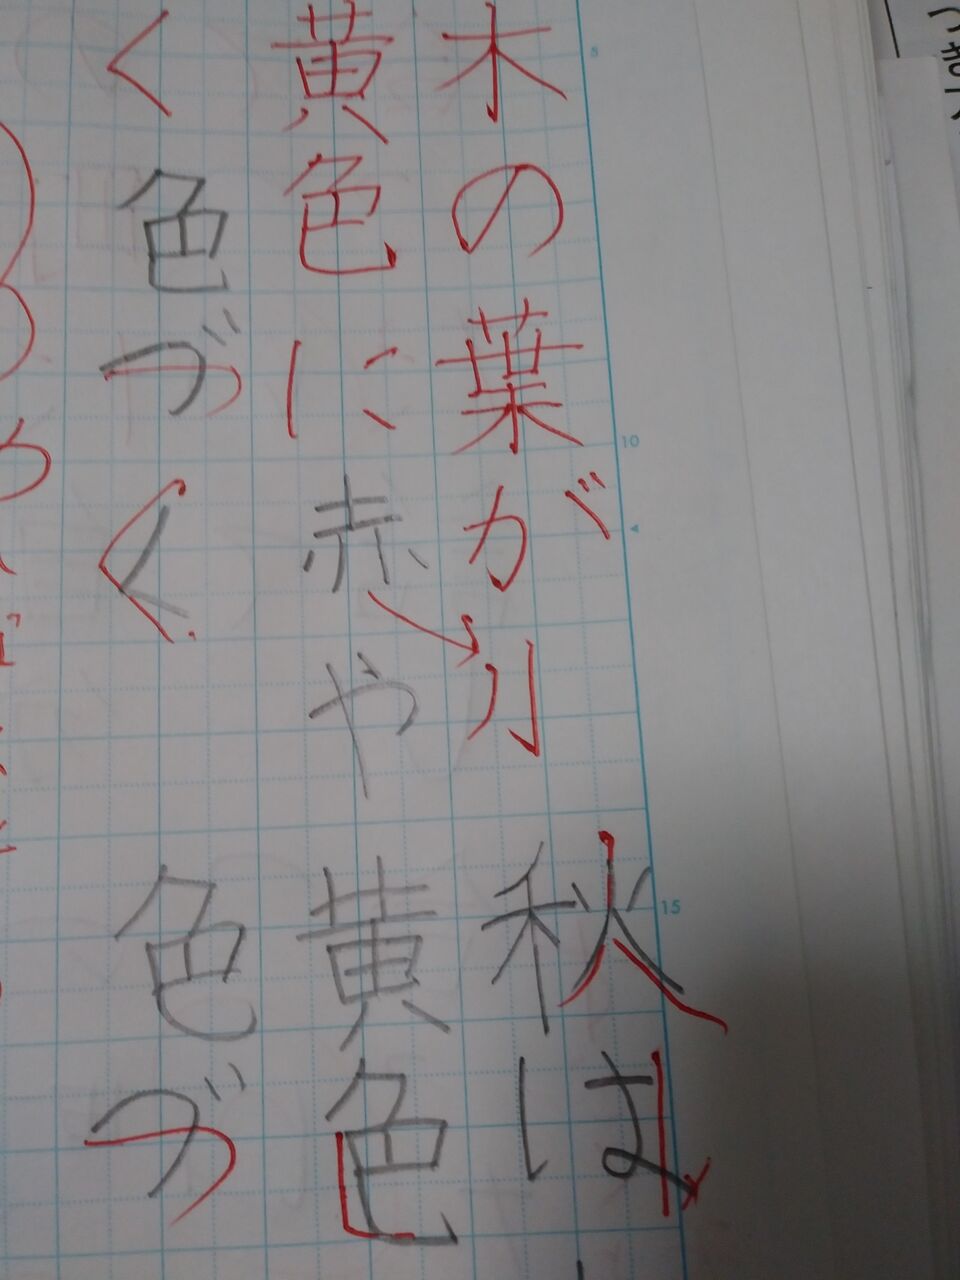 木の葉が
秋は
黄色に
赤や
黄色
く
色づく
色づ
8
10
15